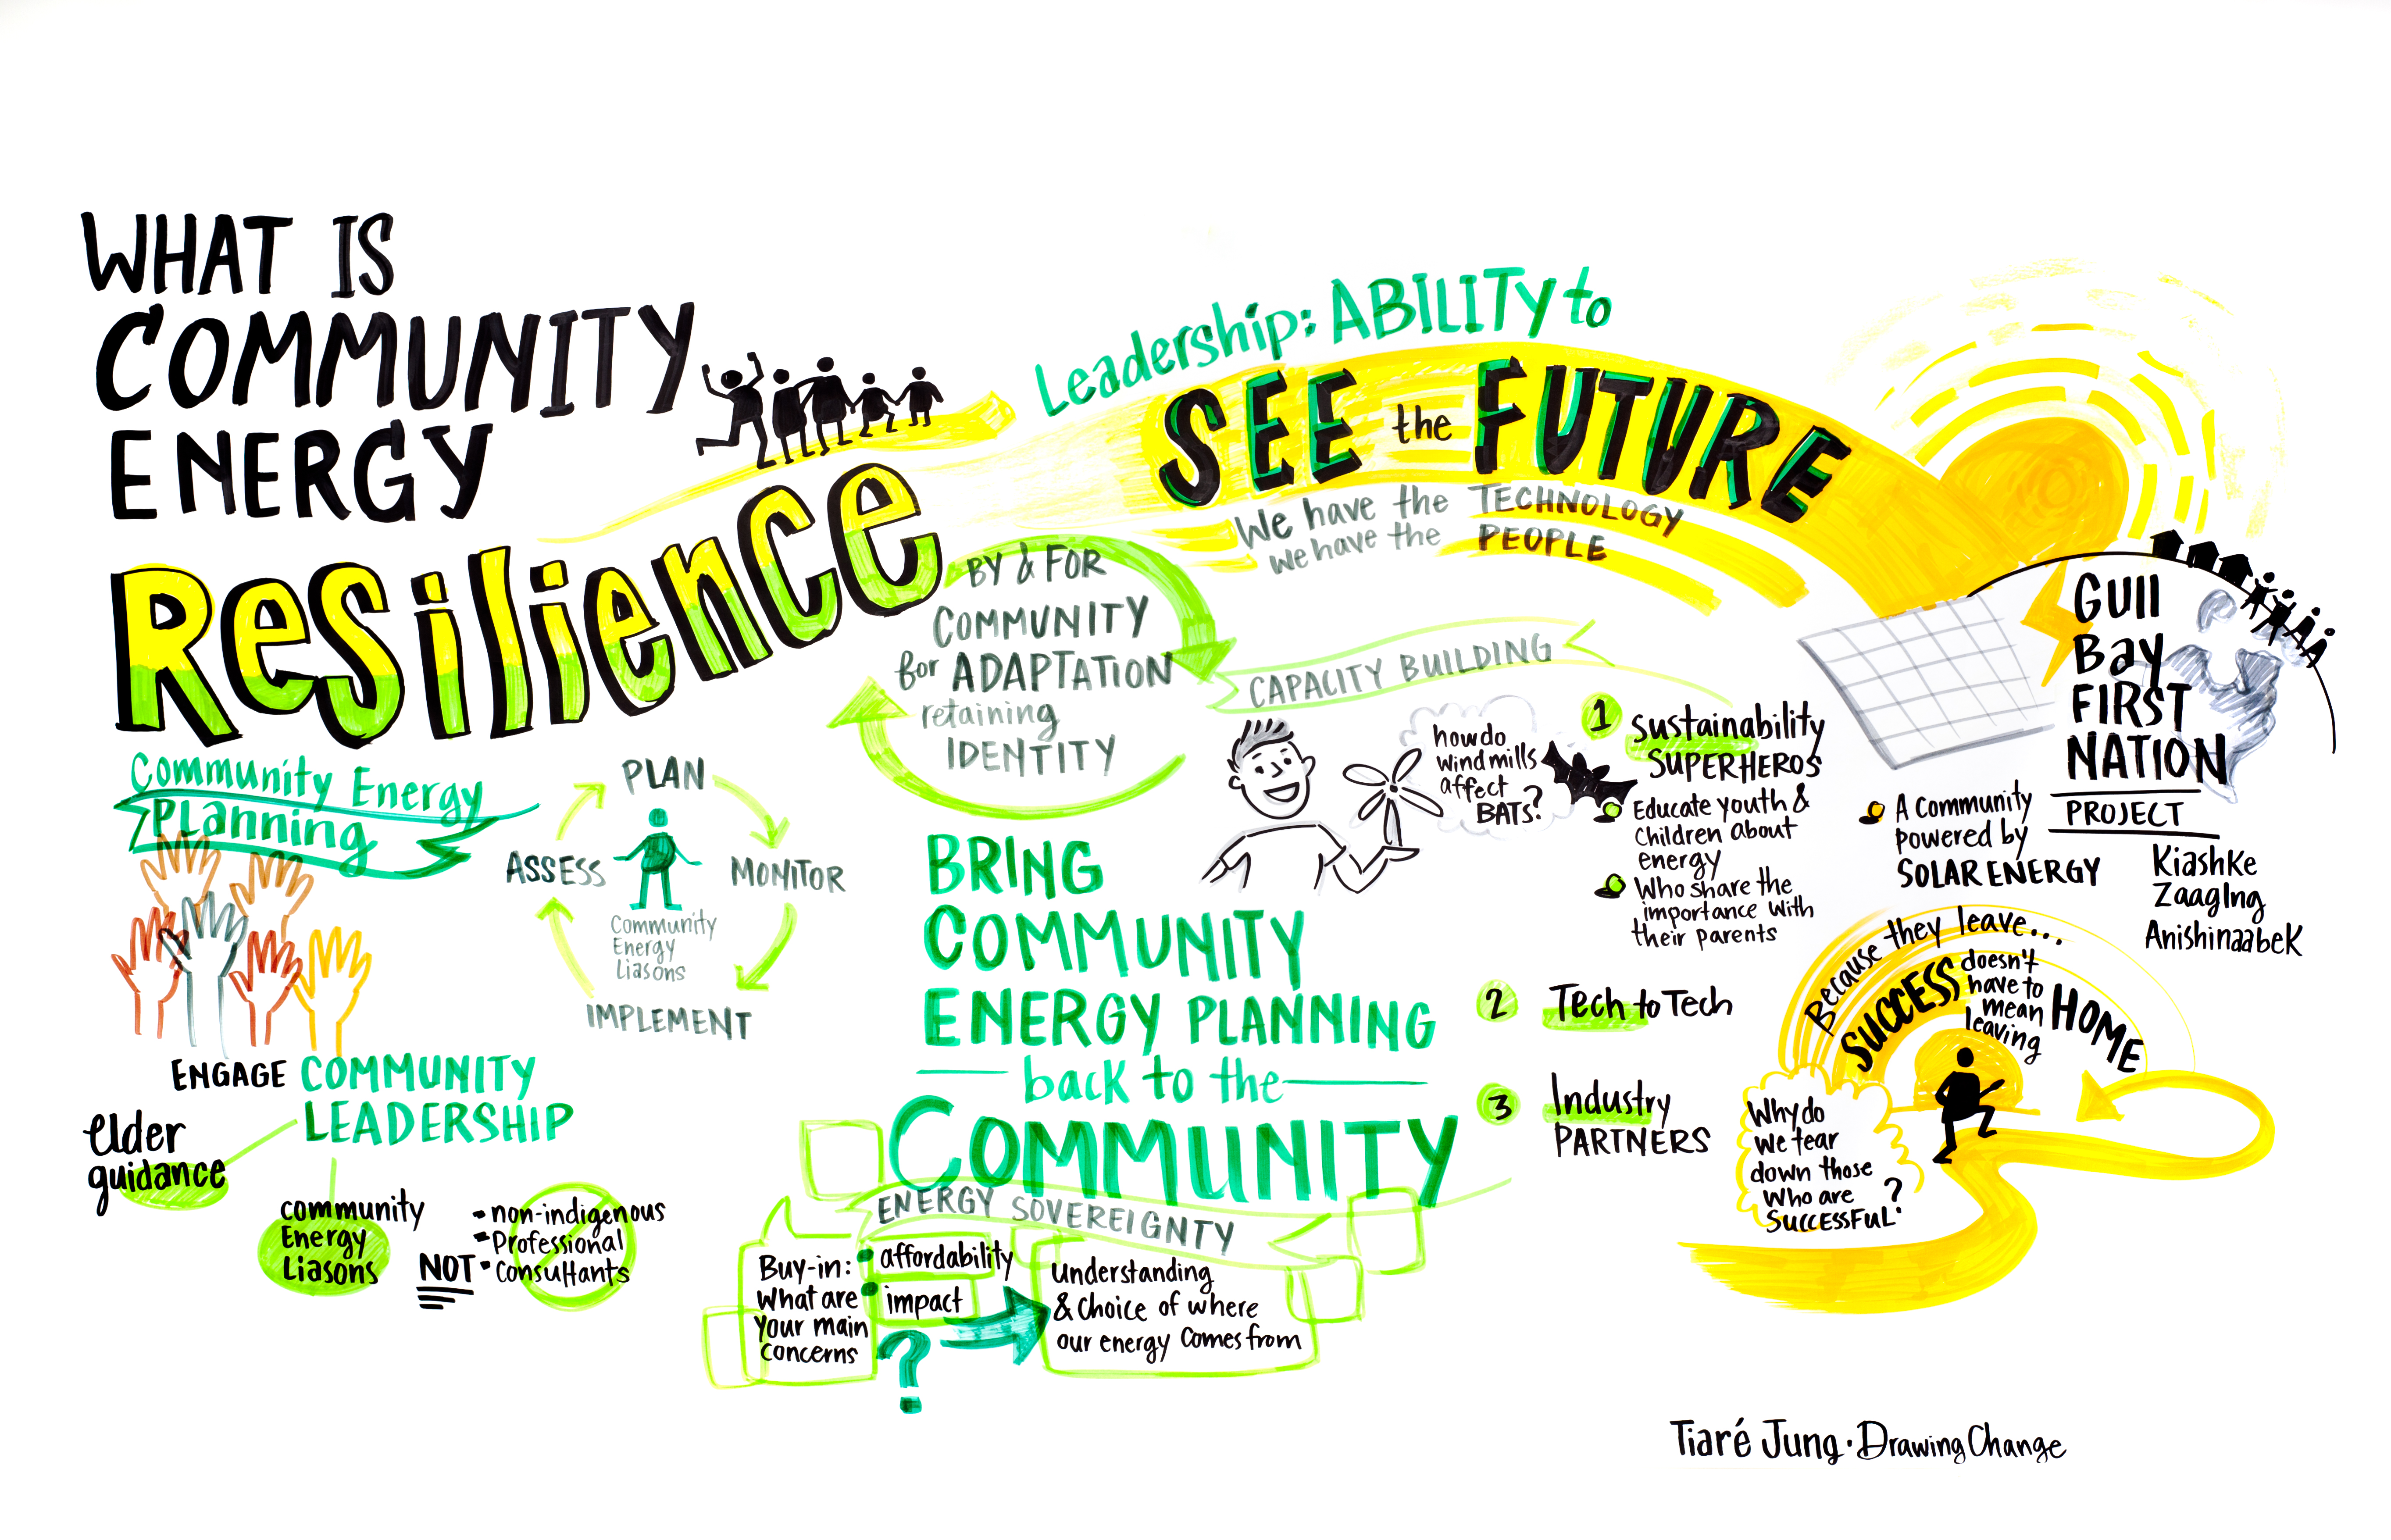 WHAT IS
COMMUNITY
ENERGY
Resilience
Leadership: ABILITY to
SEE the FUTURE
We have the TECHNOLOGY
we have the PEOPLE
BY & FOR
COMMUNITY
for ADAPTATION
retaining
IDENTITY
Community Energy
Planning
PLAN
MONITOR
IMPLEMENT
ASSESS
Community
Energy
Liasons
ENGAGE COMMUNITY
LEADERSHIP
elder
guidance
community
Energy
Liasons
NOT
• non-indigenous
• Professional
• Consultants
BRING
COMMUNITY
ENERGY PLANNING
back to the
COMMUNITY
ENERGY SOVEREIGNTY
Buy-in:
What are
your main
concerns
• affordability
• impact
?
understanding
& choice of where
our energy comes from
CAPACITY BUILDING
how do
windmills
affect
BATS?
1 Sustainability
SUPERHEROS
Educate youth &
children about
energy
Who share the
importance with
their parents
2 Tech to Tech
3 Industry
PARTNERS
Gull
Bay
FIRST
NATION
PROJECT
A community
powered by
SOLAR ENERGY
Kiashke
Zaaging
Anishinaabek
Because they leave...
SUCCESS doesn't
have to
mean
leaving
HOME
Why do
we tear
down those
who are
SUCCESSFUL?
Tiaré Jung • Drawing Change